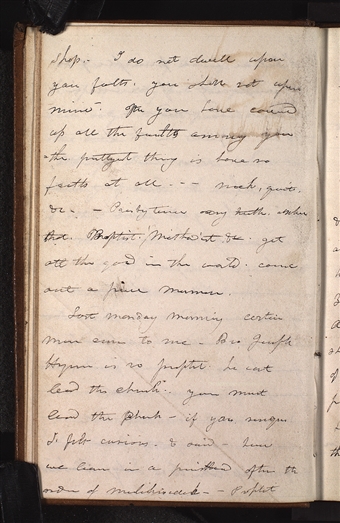 shop.- I do not dwell upon
your faults. you shall not upon
mine. you have covered
up all the faults among you
the prettyest thing is have no
faults at all. -- meek, quiet.
&c. - Presbyterian any truth. embrace
that. Baptist. Methodist. &c. get
all the good in the world. come
out a pure Mormon.
Last monday morning certain
men came to me - Bro Joseph
Hyrum is no prophet. he cant
lead the church. you must
lead the church - if you resign
I felt curious. & said - here
we learn in a priesthood after the
order of melchisedeck - Prophet